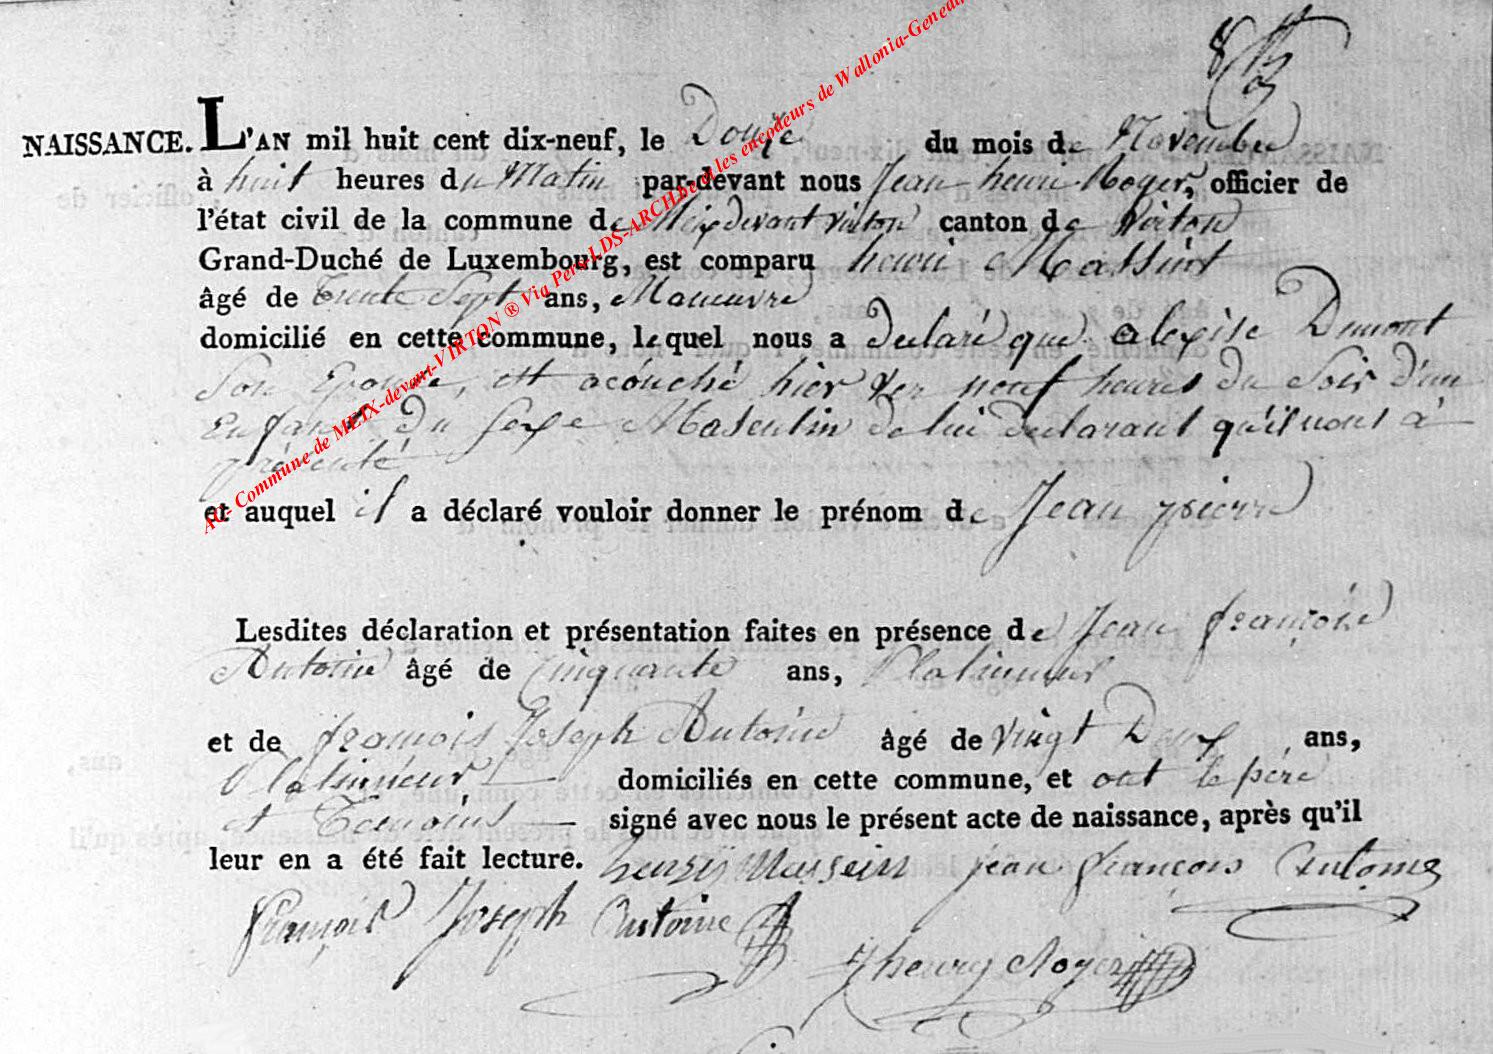 NAISSANCE. L'AN mil huit cent dix-neuf, le Douze du mois de Novembre
à huit heures du Matin par-devant nous Jean henri Roger, officier de
l'état civil de la commune de Meix devant virton canton de Virton
Grand-Duché de Luxembourg, est comparu henri Massint
âgé de trente Sept ans, Maneuvre
domicilié en cette commune, lequel nous a declaré que alexise Dumont
Son Epouse, est acouché hier ver neuf heures du Soir d'un
Enfant du sexe Masculin de lui declarant qu'il nous à
présenté
et auquel il a déclaré vouloir donner le prénom de Jean pierre
Lesdites déclaration et présentation faites en présence de Jean françois
Antoine âgé de Cinquante ans, Platineur
et de françois Joseph Antoine âgé de vingt Deux ans,
Platineur domiciliés en cette commune, et ont le père
et Temoins signé avec nous le présent acte de naissance, après qu'il
leur en a été fait lecture. henry Massein jean françois Antoine
françois Joseph Antoine
J henry Roger
AC- Commune de MEIX-devant-VIRTON ® Via Pers-LDS-ARCH.be et les encodeurs de Wallonia-Genealo